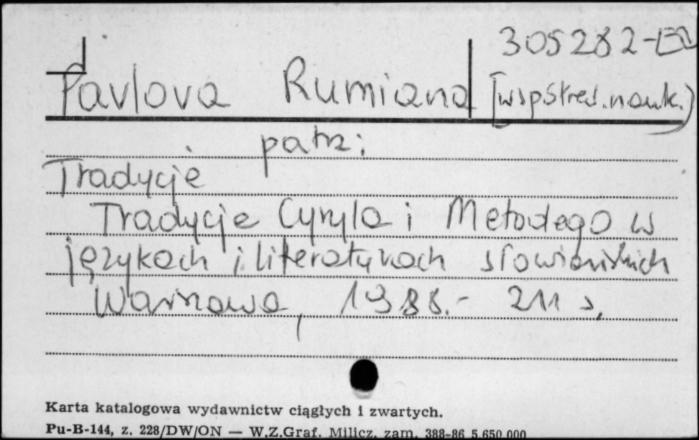 305282-
Pavlova Rumiana [współred. nauk.)
patrz:
Tradycje
Tradycje Cyryla i Metodego w
językach i literaturach słowiańskich
Warszawa, 1988.- 211 s.
Karta katalogowa wydawnictw ciągłych i zwartych.
Pu-B-144, z. 228/DW/ON — W.Z.Graf. Milicz, zam. 388-86 5.650.000